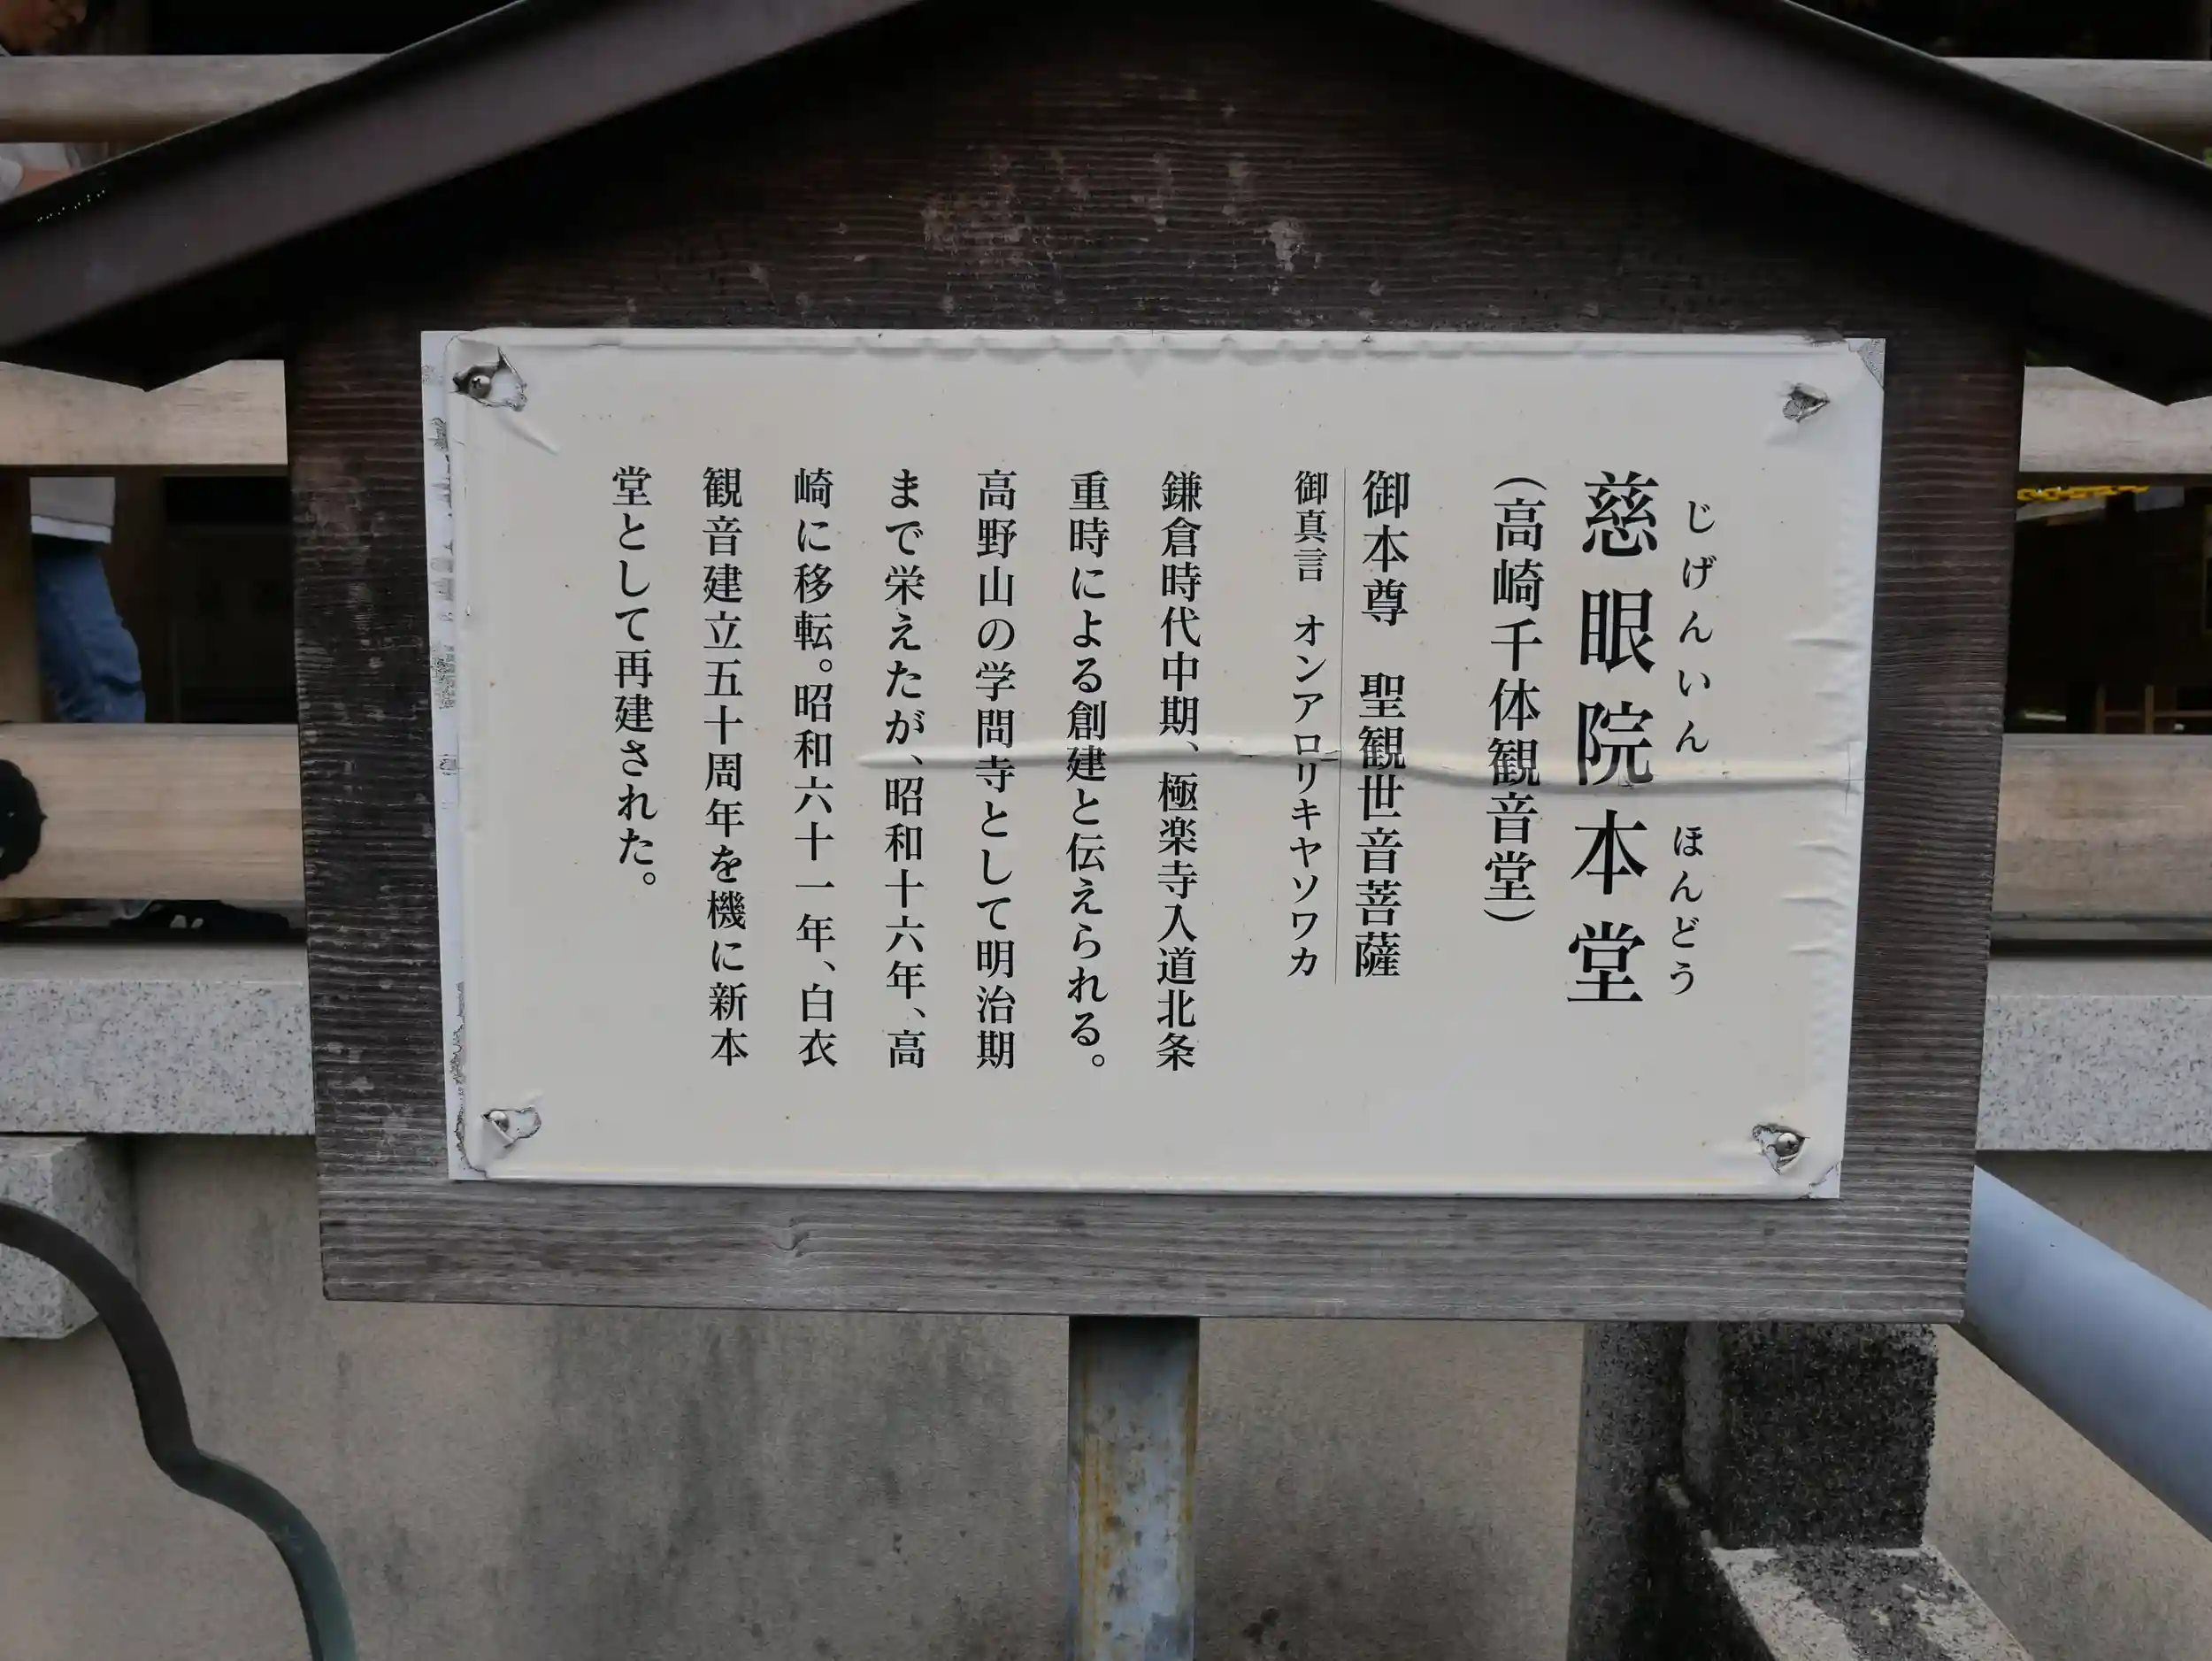 じげんいん　ほんどう
慈眼院本堂
（高崎千体観音堂）
御本尊　聖観世音菩薩
御真言　オンアロリキヤソワカ
鎌倉時代中期、極楽寺入道北条
重時による創建と伝えられる。
高野山の学問寺として明治期
まで栄えたが、昭和十六年、高
崎に移転。昭和六十一年、白衣
観音建立五十周年を機に新本
堂として再建された。